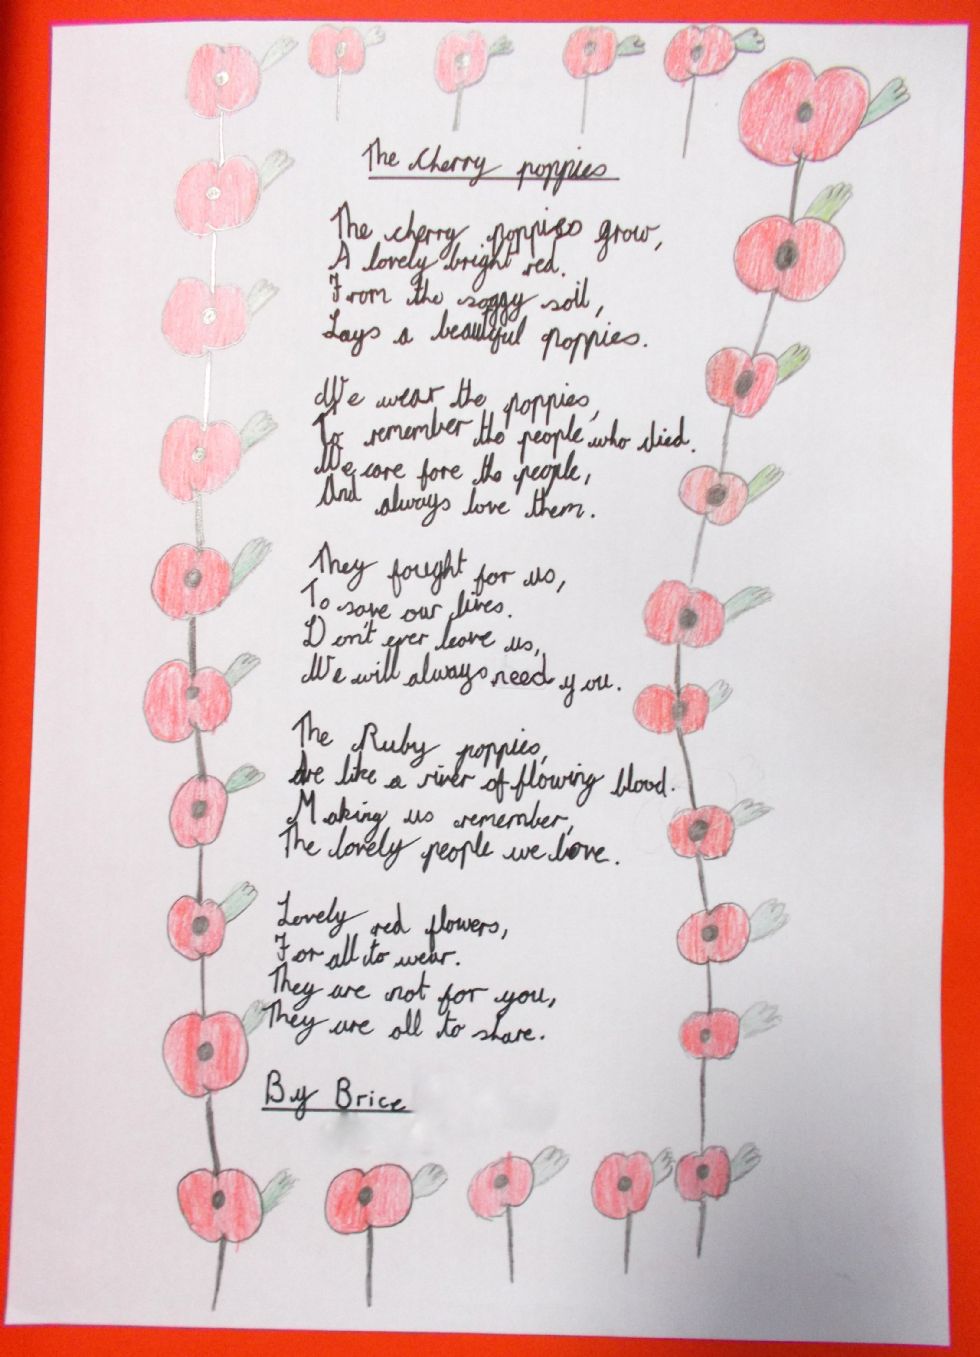 The Cherry poppies
The cherry poppies grow,
A lovely bright red.
From the soggy soil,
Lays a beautiful poppies.
We wear the poppies,
To remember the people who died.
We care fore the people,
And always love them.
They fought for us,
To save our lives.
Don't ever leave us,
We will always need you.
The Ruby poppies,
Are like a river of flowing blood.
Making us remember,
The lovely people we love.
Lovely red flowers,
For all to wear.
They are not for you,
They are all to share.
By Brice